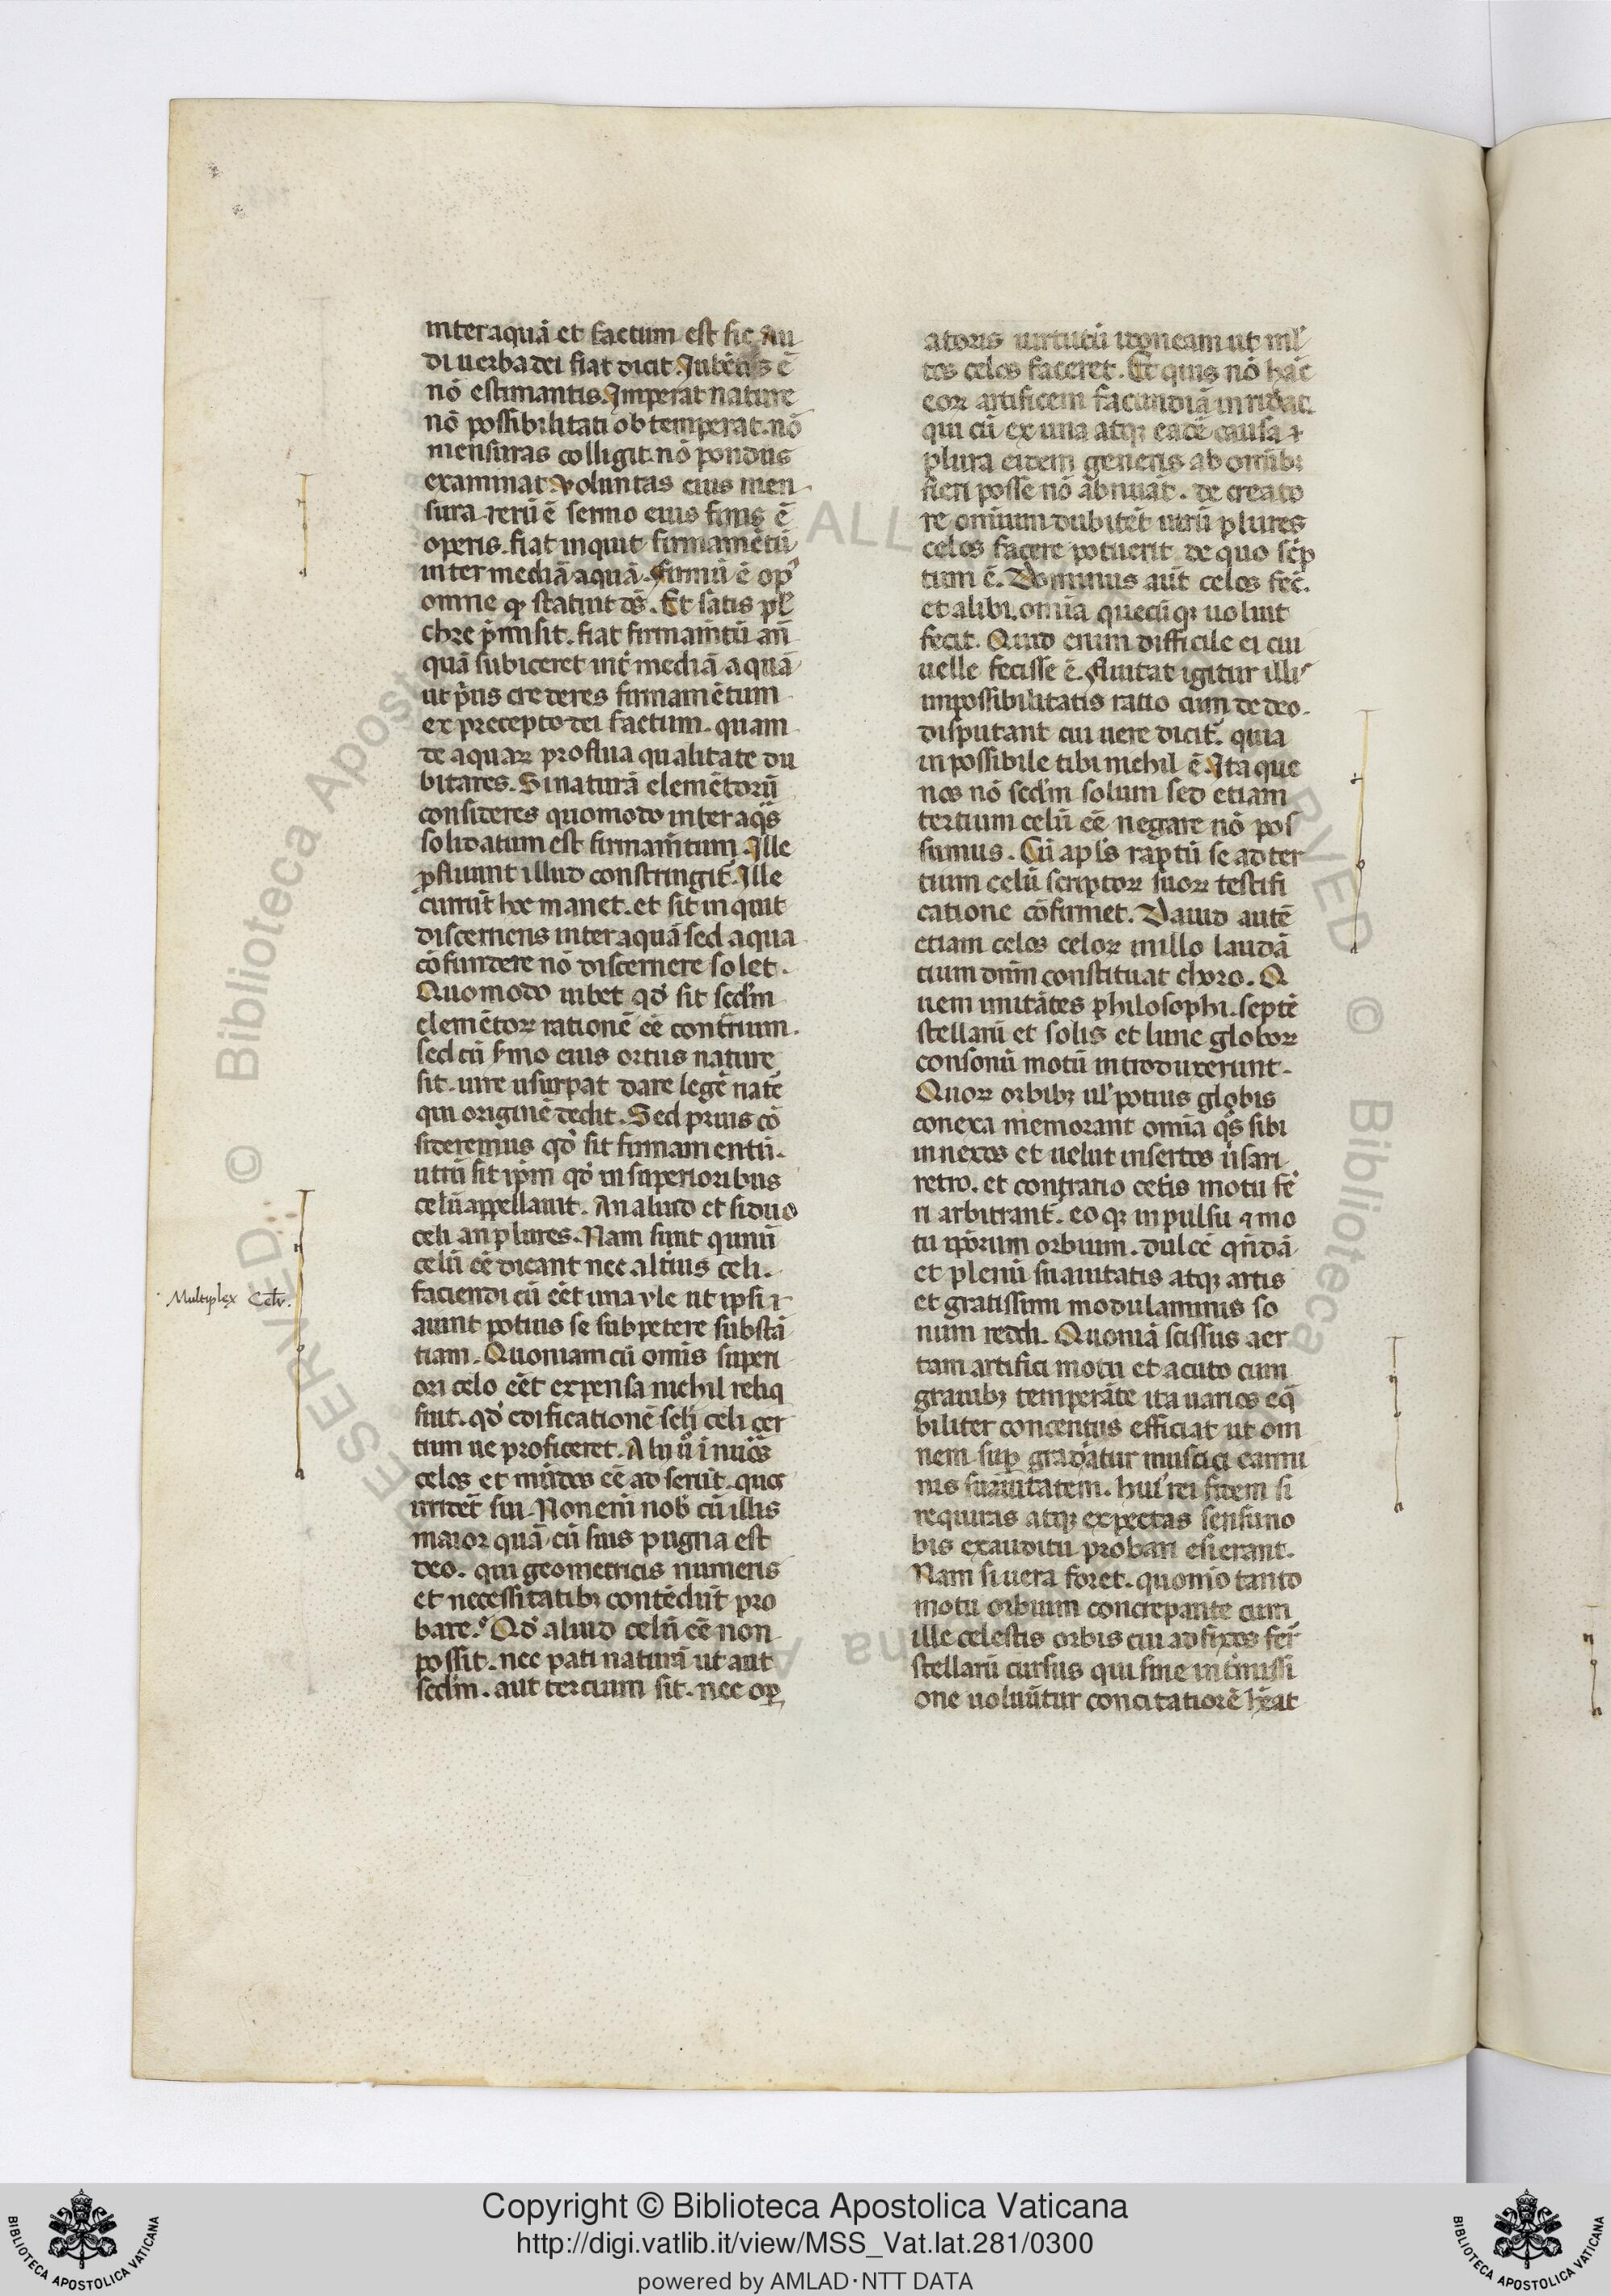 inter aquā et factum est sic. Au
di uerba dei fiat dicit. Iubētis ē
nō estimantis. Imperat nature
nō possibilitati obtemperat. nō
mensuras colligit. nō pondus
examinat. voluntas eius men
sura rerū ē sermo eius finis ē
operis. fiat inquit firmamētū
inter mediā aquā. firmū ē op̄
omne qđ statuit dš. Et satis pl̄
chre p̄misit. fiat firmam̄tū an̄
quā subiceret int̄ mediā aquā
ut p̄us crederes firmamētum
ex precepto dei factum. quam
de aquaꝝ proflua qualitate du
bitares. Si naturā elemētorū
consideres quomodo inter aq̄s
solidatum est firmam̄tum. Ille
ꝓfluunt illud constringit̄. Ille
currūt hoc manet. et sit inquit
discernens inter aquā sed aqua
cōfundere nō discernere solet.
Quomodo iubet qđ sit scđm
elemētoꝝ rationē ēē cont̄rium.
sed cū s̄mo eius ortus nature
sit. iure usurpat dare legē nat̄e
qui originē dedit. Sed prius cō
sideremus qđ sit firmamentū.
utrū sit ip̄m qđ in superioribus
celū appellauit. An aliud et si duo
celi an plures. Nam sunt qui unū
celū ēē dicant nec alterius celi.
faciendi cū ēēt una yle ut ipsi
aiunt potuisse subpetere substā
tiam. Quoniam cū omīs superi
ori celo ēēt expensa nichil reliq
fiut. qđ edificationē scđi celi uel ter
tium ue proficeret. Alij ū̊ īnuōs
celos et mūdos ēē ad serūt. quos
irridēt sui. Non eni nob̄ cū illis
maior quā cū suis pugna est
deo. qui geometricis numeris
et necessitatibꝫ contēdūt pro
bare. Qđ aliud celū ēē non
possit. nec pati naturā ut aut
scđm. aut tercium sit. nec oꝑ
atoris uirtutū idoneam ut ml̄
tos celos faceret. Et quis nō hāc
eoꝝ artificem facundiā inrideat.
qui cū ex una atqꝫ eadē causa
plura eidem generis ab om̄ibꝫ
fieri posse nō abnuāt. de creato
re omium dubitēt utrū plures
celos facere potuerit. de quo sc̄p
tum ē. Dominus aūt celos fec̄.
et alibi. omīa quecūqꝫ uoluit
fecit. Quid enim difficile ei cui
uelle fecisse ē. Nutat igitur illis
impossibilitatis ratio cum de deo.
disputant cui uere dicit̄. quia
inpossibile tibi nichil ē. Ita que
nos nō scđm solum sed etiam
tertium celū ēē negare nō pos
sumus. Cū apl̄s raptū se ad ter
tium celū scriptoꝝ suoꝝ testifi
catione cōfirmet. Dauid autē
etiam celos celoꝝ in illo laudā
tium dnm̄ constituat choro. Q
uem imitātes philosophi. septē
stellarū et solis et lune globoꝝ
consonū motū introduxerunt.
Quoꝝ orbibꝫ ul̄ potius globis
conexa memorant omīa q̊s sibi
innexos et uelut insertos ūsari
retro. et contrario cet̄is motu fer
ri arbitrant̄. eoqꝫ inpulsu ⁊ mo
tu ip̄orum orbium. dulcē quādā
et plenū suauitatis atqꝫ artis
et gratissimi modulaminis so
num reddi. Quoniā scissus aer
tam artifici motu et acuto cum
grauibꝫ temperāte ita uarios eq̄
biliter concentus efficiat ut om
nem suꝑ gradiatur musici carmi
nis suauitatem. hui' rei fidem si
requiras atqꝫ expectas sensu no
bis exauditu probari esierant.
Nam si uera foret. quom̄o tanto
motu orbium concrepante cum
ille celestis orbis cui ad fixos fer̄
stellarū cursus qui sine int̄missi
one uoluūtur concitatiorē
Multiplex Celū.
Copyright © Biblioteca Apostolica Vaticana
http://digi.vatlib.it/view/MSS_Vat.lat.281/0300
powered by AMLAD·NTT DATA